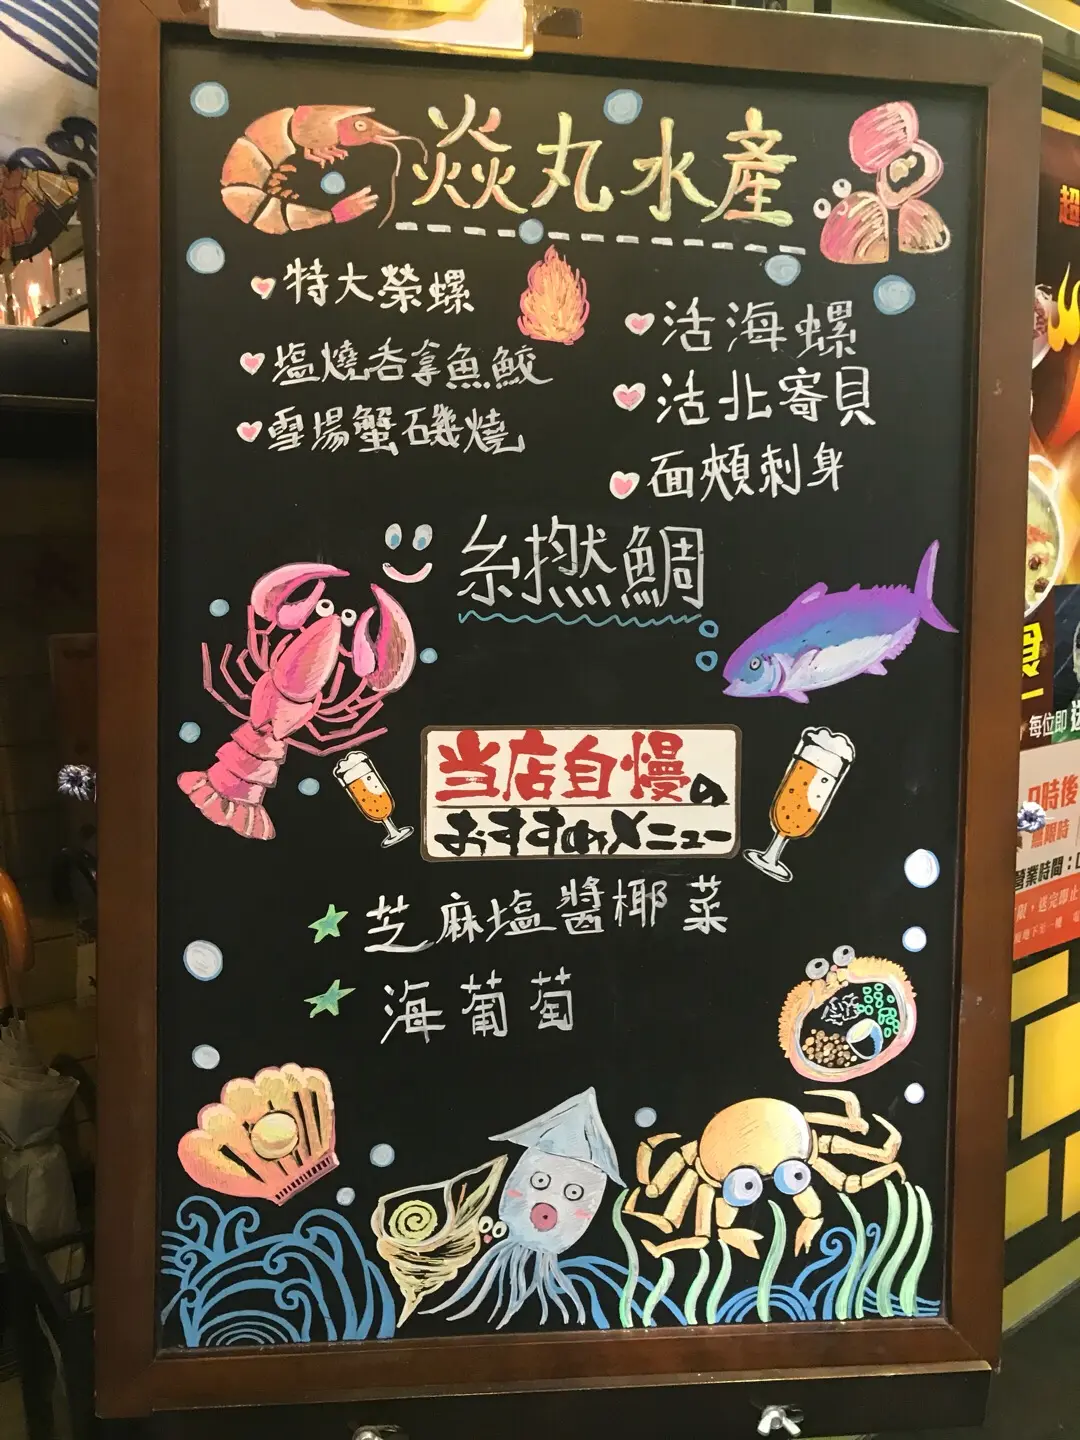 焱丸水產
特大榮螺
塩燒吞拿魚鮫
雪場蟹磯燒
活海螺
活北寄貝
面頰刺身
糸撚鯛
当店自慢の
おすすめメニュー
芝麻塩醬椰菜
海葡萄
超
食
每位即送
時後
無限時
營業時間:
送完即止